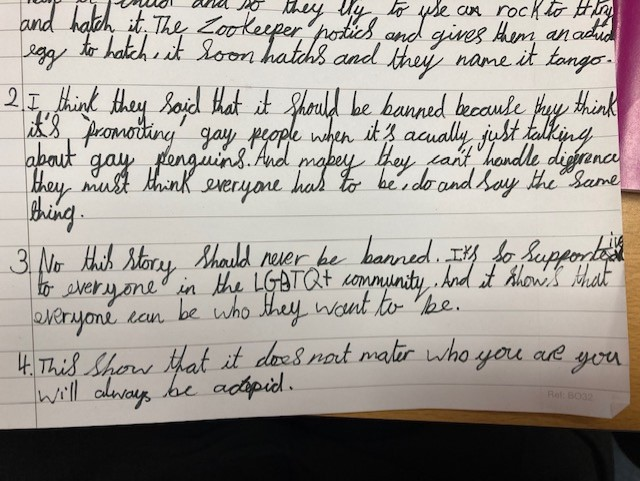 and so they try to use an rock to try
and hatch it. The Zookeeper notics and gives them an actual
egg to hatch, it soon hatchs and they name it tango.
2. I think they said that it should be banned because they think
it's 'promoiting' gay people when it's acually just talking
about gay penguins. And mabey they can't handle diffrence
they must think everyone has to be, do and say the same
thing.
3. No this story should never be banned. It's so supportive
to everyone in the LGBTQ+ community. And it shows that
everyone can be who they want to be.
4. This show that it does not mater who you are you
will always be adopid.
Ref: BO32